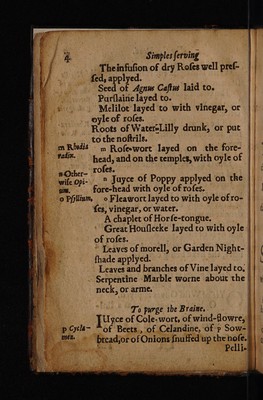 4 Simples serving
The infusion of dry Roses well pres-
sed, applyed.
Seed of Agnus Castus laid to.
Purslaine layed to.
Melilot layed to with vinegar, or
oyle of roses.
Roots of Water-Lilly drunk, or put
to the nostrils.
m Rhodia radix.
m Rose-wort layed on the fore-
head, and on the temples, with oyle of
roses.
n Other-
wise Opi-
um.
n Juyce of Poppy applyed on the
fore-head with oyle of roses.
o Psyllium.
o Fleawort layed to with oyle of ro-
ses, vinegar, or water.
A chaplet of Horse-tongue.
Great Housleeke layed to with oyle
of roses.
Leaves of morell, or Garden Night-
shade applyed.
Leaves and branches of Vine layed to.
Serpentine Marble worne about the
neck, or arme.
To purge the Braine.
IUyce of Cole-wort, of wind-flowre,
of Beets, of Celandine, of p Sow-
p Cycla-
men.
bread, or of Onions snuffed up the nose.
Pelli-